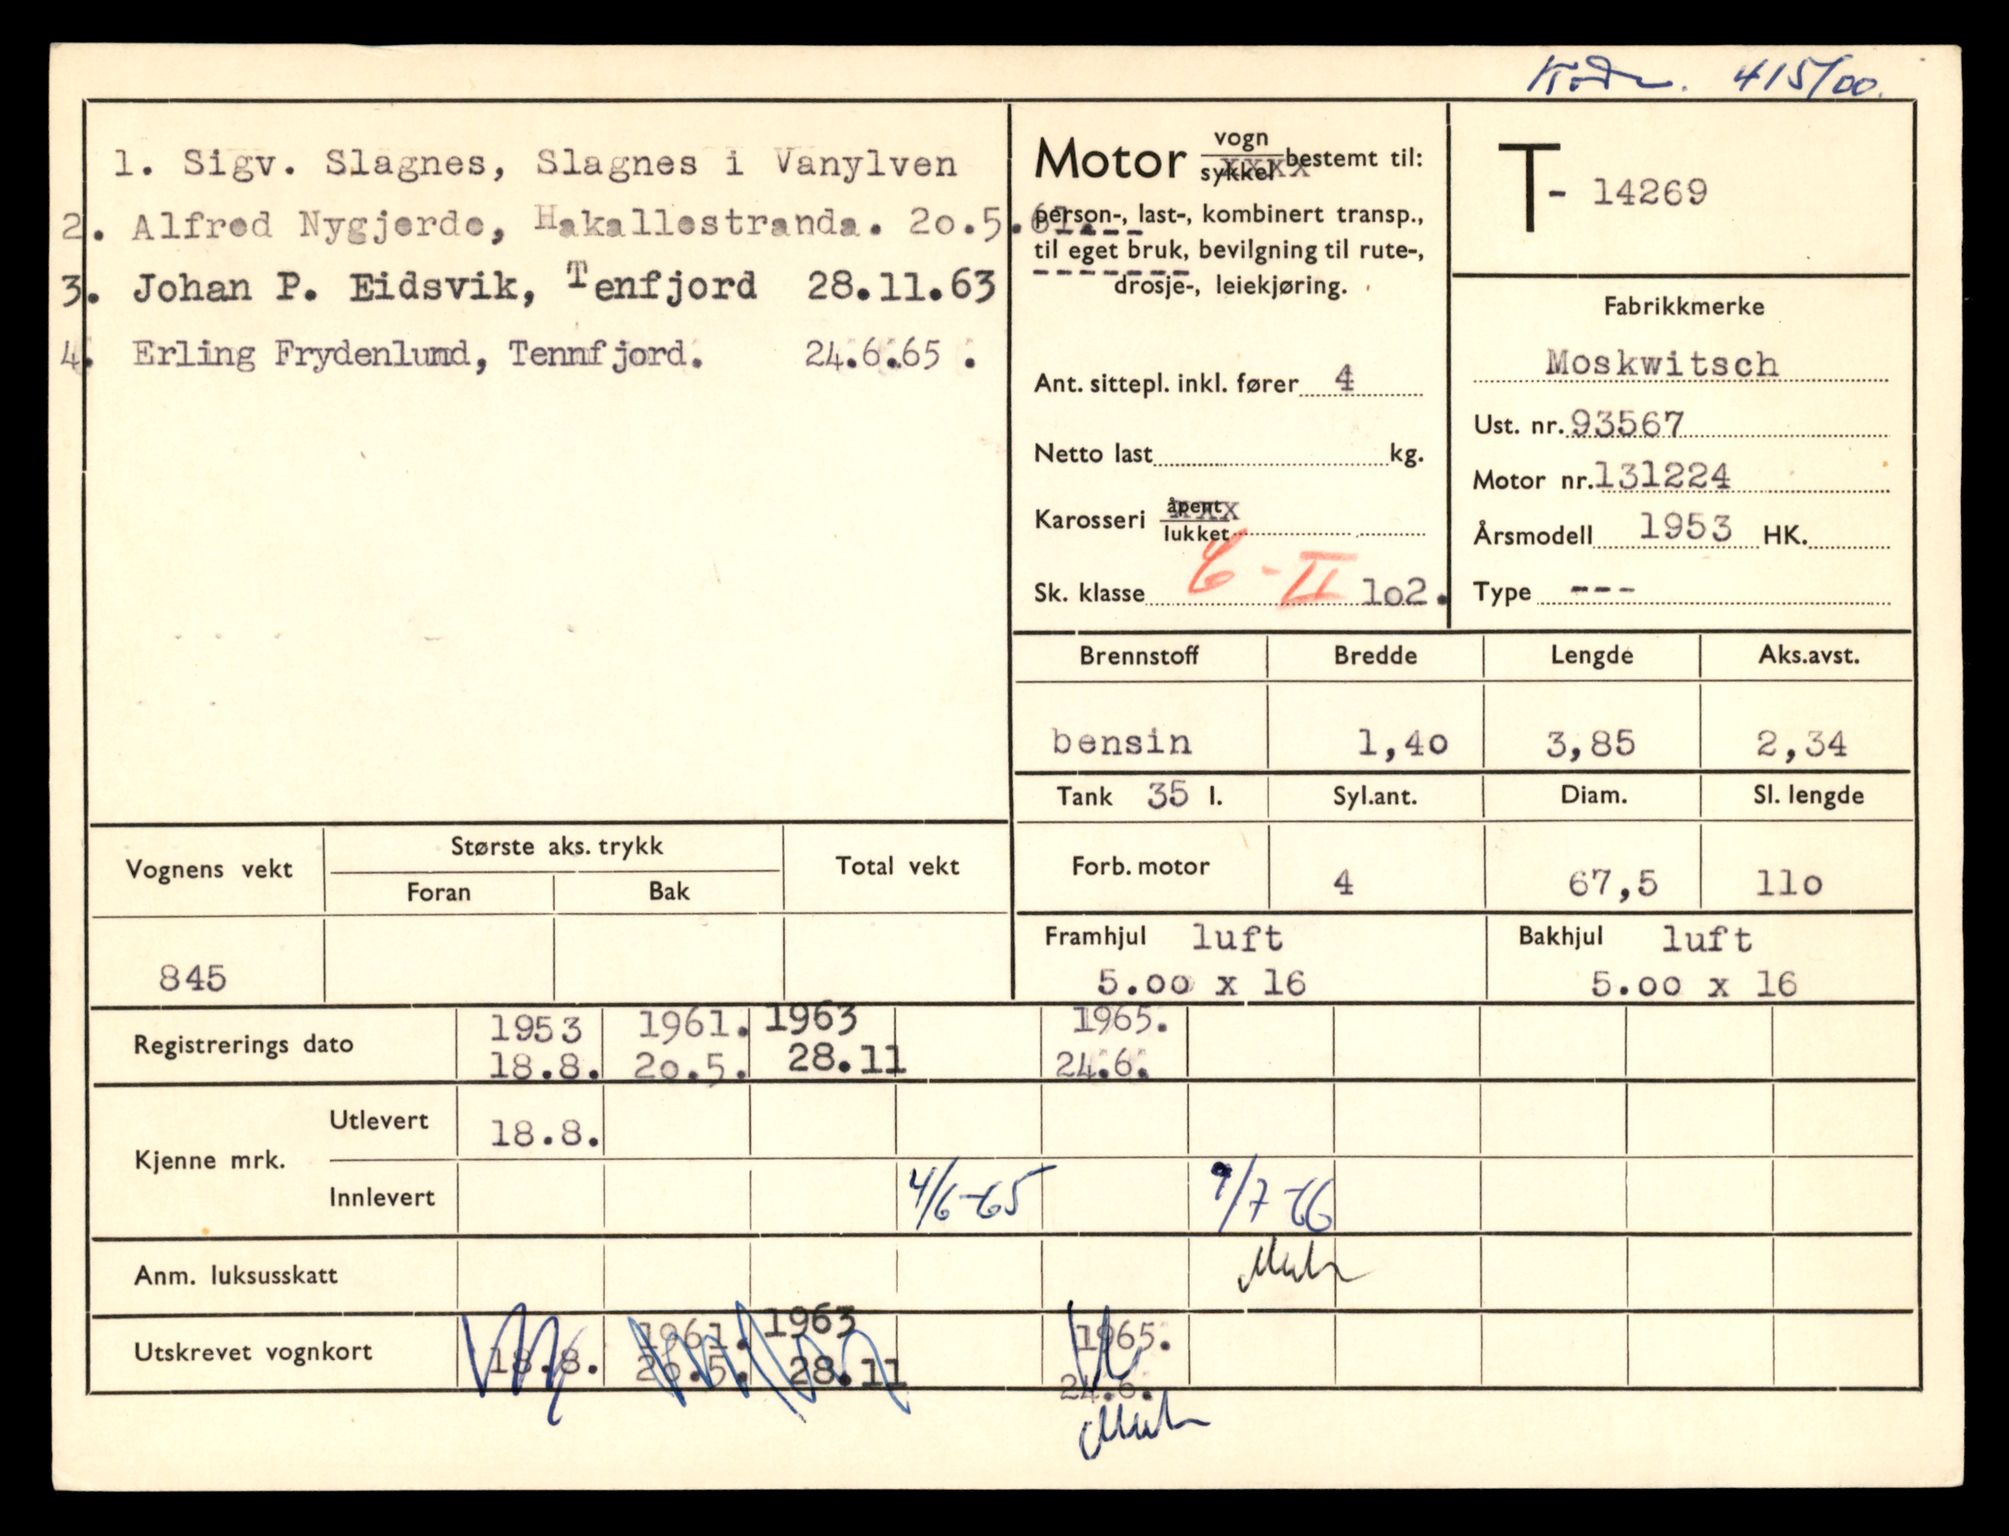 415/00.
1. Sigv. Slagnes, Slagnes i Vanylven
2. Alfred Nygjerde, Hakallestranda. 20.5.61.
3. Johan P. Eidsvik, Tenfjord 28.11.63
4. Erling Frydenlund, Tennfjord. 24.6.65 .
Motor vogn bestemt til:
sykkel
person-, last-, kombinert transp.,
til eget bruk, bevilgning til rute-,
drosje-, leiekjøring.
Ant. sittepl. inkl. fører 4
Netto last kg.
Karosseri åpent
lukket
Sk. klasse 6 - II 102.
T- 14269
Fabrikkmerke
Moskwitsch
Ust. nr. 93567
Motor nr. 131224
Årsmodell 1953 HK.
Type ---
Brennstoff Bredde Lengde Aks.avst.
bensin 1,40 3,85 2,34
Tank 35 l. Syl.ant. Diam. Sl. lengde
Forb. motor 4 67,5 110
Framhjul luft Bakhjul luft
5.00 x 16 5.00 x 16
Vognens vekt Største aks. trykk Total vekt
Foran Bak
845
Registrerings dato 1953 1961. 1963 1965.
18.8. 20.5. 28.11 24.6.
Kjenne mrk. Utlevert 18.8.
Innlevert 4/6-65 9/7-66
Anm. luksusskatt
Utskrevet vognkort 1961. 1963 1965.
18.8. 20.5. 28.11 24.6.